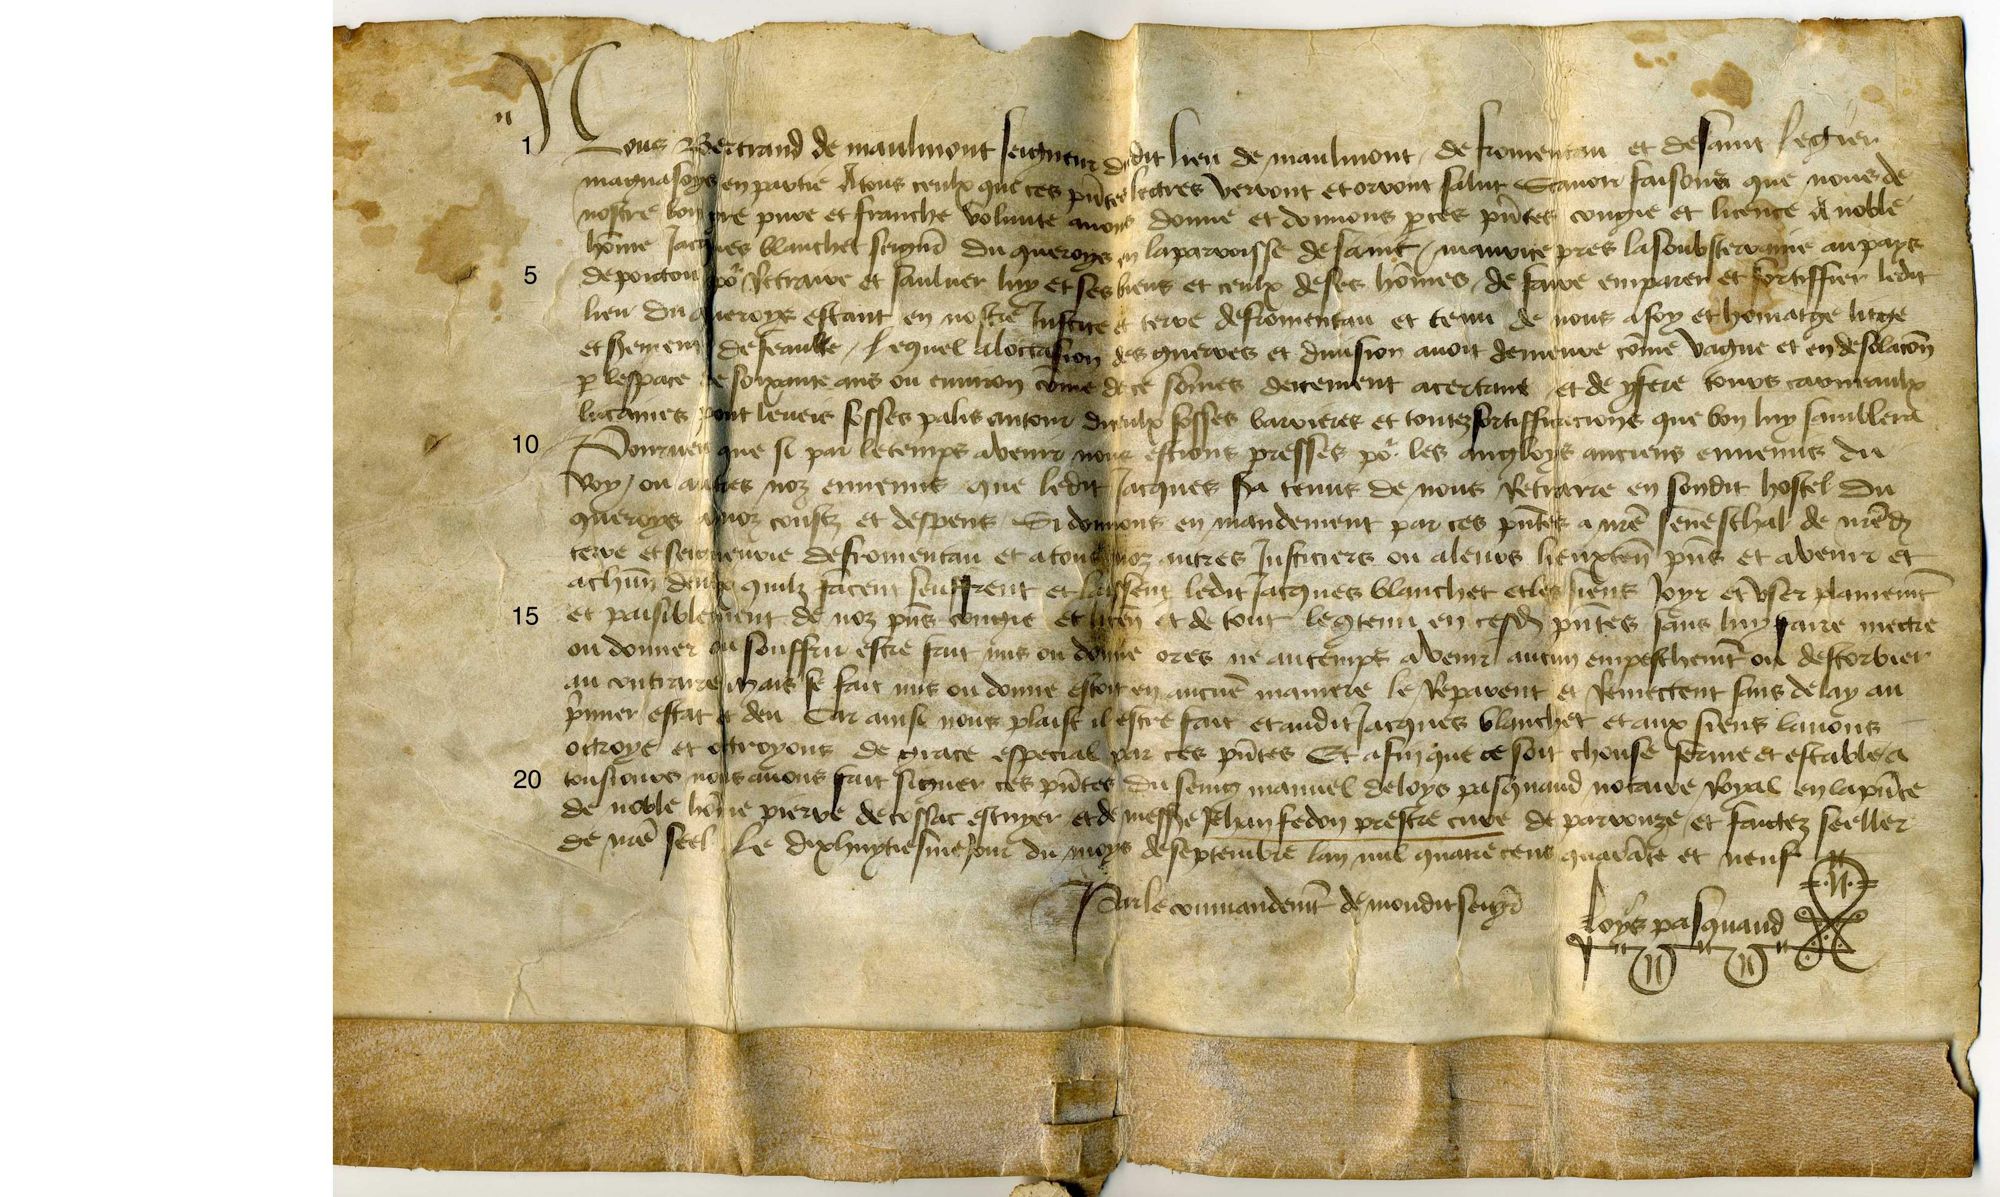 Nous Bertrand de maulmont seigneur dudit lieu de maulmont, de fromentau et de saint legier
1
magnasoys en partie A tous ceulx que ces pñtes lectres verront et orront salut Scavoir faisons que nous de
nostre bon gre pure et franche volunte avons donne et donnons p ces pñtes congie et licence A noble
hõme Jacques blanchet seignr̃ du queroys en la parroisse de saint maurice pres la soubsterraine au pays
5
de poictou po.r Retraire et saulver luy et ses biens et ceulx de ses hõmes, de faire emparer et fortiffier ledit
lieu du queroys estant en nostre Justice et terre de fromentau et tenu de nous a foy et homatge litge
et serment de feaulte, lequel a loccasion des guerres et division avoit demeure cõme vague et en desolacõn
p lespace de soixante ans ou environ cõme de ce sõmes acertans et de y fere tours carneaulx
lucarnes pont leveis fosses palis autour diceulx fosses barrieres et toutez fortifficacions que bon luy samblera
10
Pourveu que si par le temps avenir nous estions presses po.r les angloys anciens ennemis du
Roy, ou autres noz ennemis que ledit Jacques tenus de nous Retraire en sondit hostel du
queroys a noz coustz et despens Si donnons en mandement par ces pñtes a nr̃e seneschal de nr̃ed
terre et seigneurie de fromentau et a tous noz autres Justiciers ou a leurs lieuxten̄ pñs et avenir et
a chun̄ deulx quilz facent seuffrent et laissent ledit Jacques blanchet et les siens Joyr et user planemt̃
15
et paisiblement de noz pñs congie et licen̄ et de tout le gtenu en cesd pñtes sans luy faire mectre
ou donner ou souffrir estre fait mis ou donne ores ne au temps avenir aucun empeschemt̃ ou destorbier
au contraire mais se fait mis ou donne estoit en aucune maniere le Reparent et Remectent sans delay au
p̃mier estat et deu Car ainsi nous plaist il estre fait et audit Jacques blanchet et aux siens lavons
octroye et octroyons de grace especial par ces pñtes Et afin que ce soit chouse ferme et estable a
20
tousiours nous avons fait signer ces pñtes du seing manuel de loys pasquaud notaire Royal en la pñce
de noble hõme pierre de cossac escuyer et de messire Jehan fedon prestre cure de parronze, et faictez seeller
de nr̃e seel Le dixhuytiesme Jour du moys de septembre lan mil quatre cens quarãte et neuf
Par le commandemt̃ de mondit seigr̃
loys pasquaud